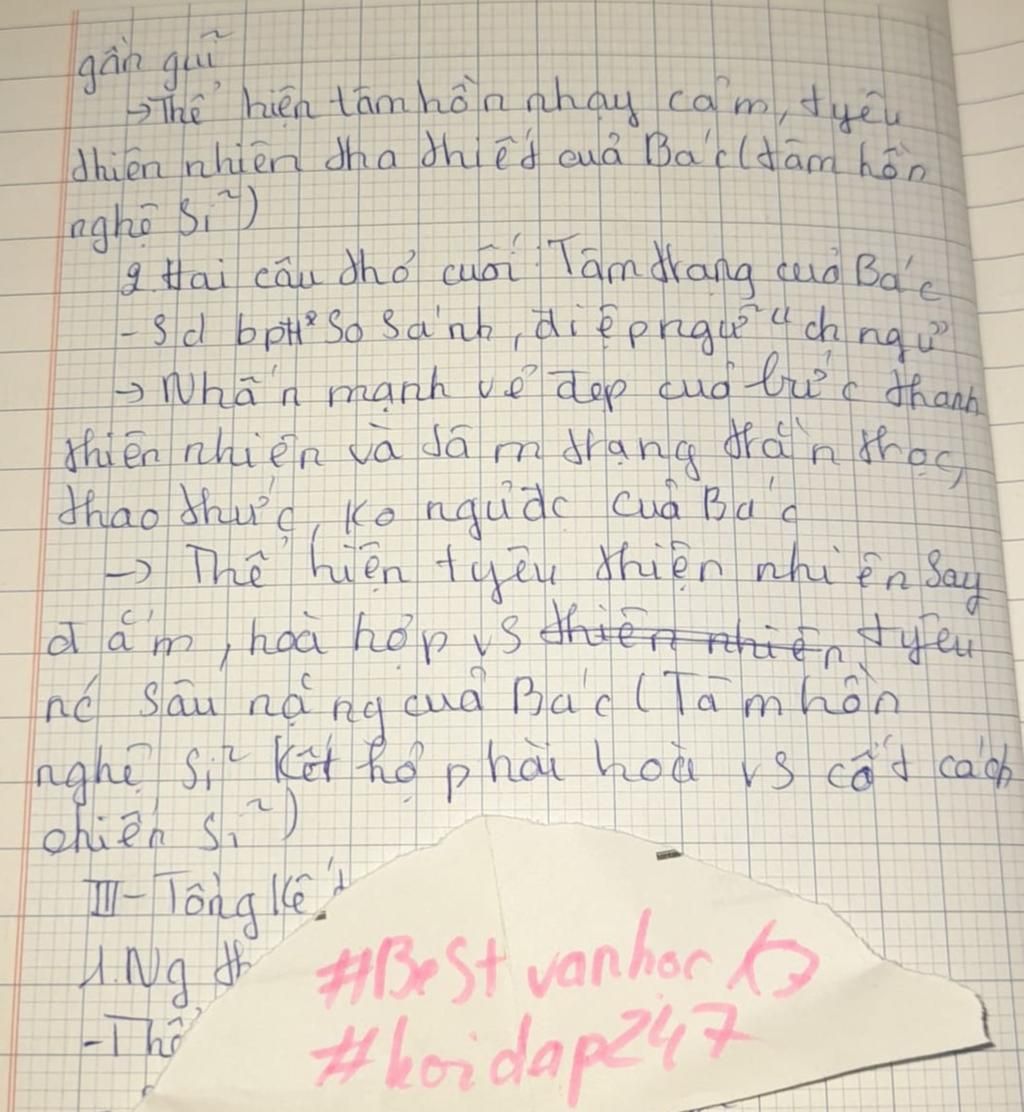 gần gũi
→Thể hiện tâm hồn nhạy cảm, tyêu
thiên nhiên tha thiết cuả Bác (tâm hồn
nghệ sĩ)
2 Hai câu thơ cuối: Tâm trạng cuả Bác
- Sd bpt² so sánh, điệp ngữ "ch ngủ"
→ Nhấn mạnh vẻ đẹp cuả bức tranh
thiên nhiên và tâm trạng trằn trọc,
thao thức, ko ngủ đc cuả Bác
→ Thể hiện tyêu thiên nhiên say
đắm, hoà hợp vs thiên nhiên, tyêu
nc sâu nặng cuả Bác (Tâm hồn
nghệ sĩ kết hợp hài hoà vs cốt cách
chiến sĩ)
III- Tổng kết
1. Ng th
- Thể
#Best vanhoc
#hoidap247